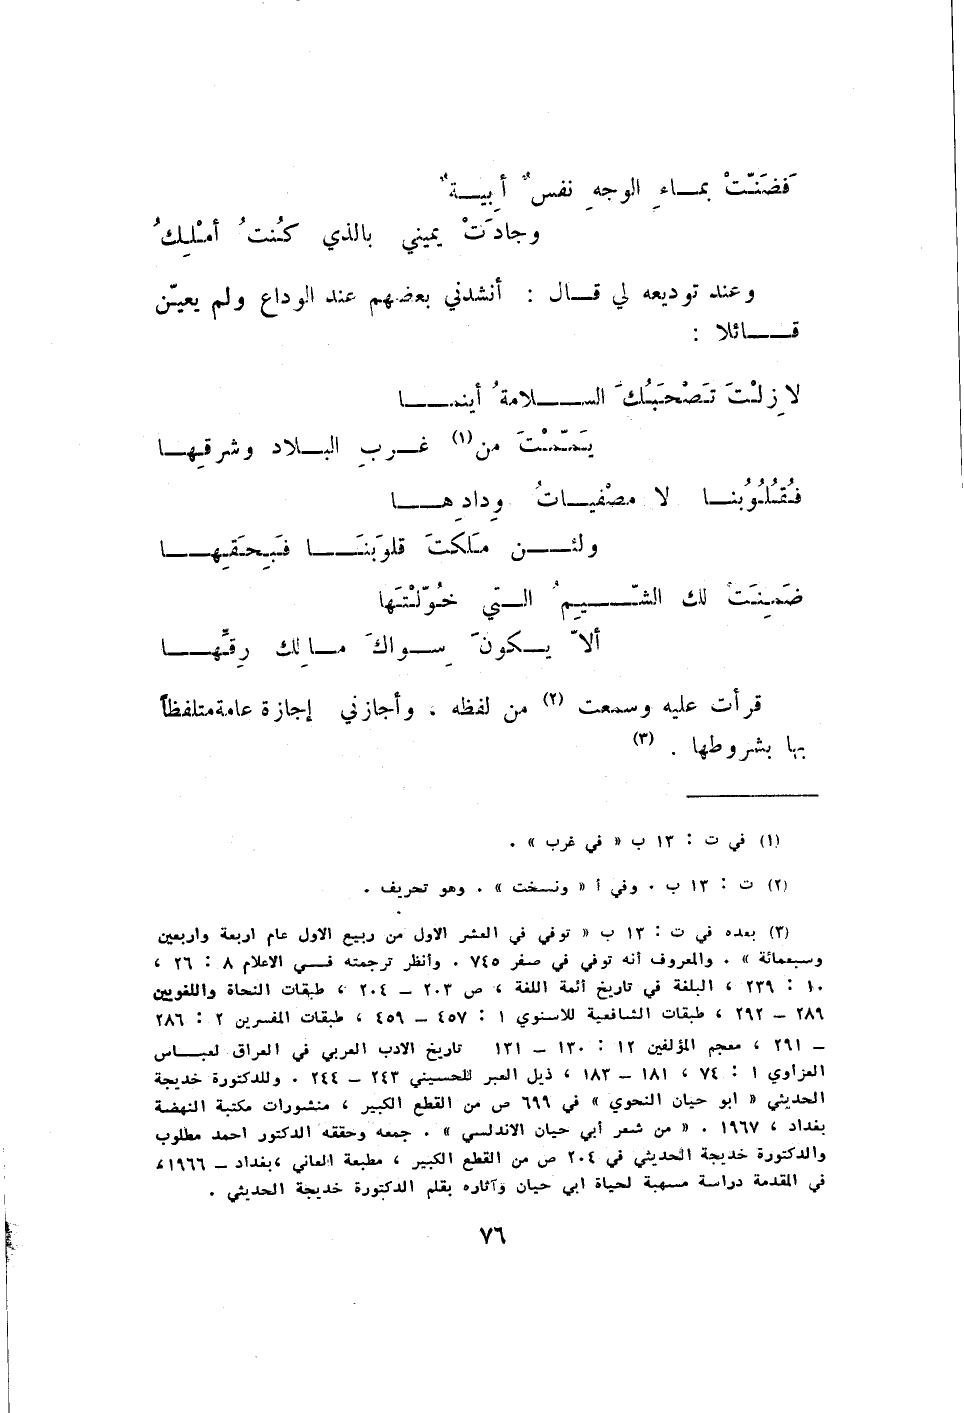 فَضَنَّتْ بمـاءِ الوجهِ نفسٌ أبِيـةٌ
وجادَتْ يميني بالذي كُنتُ أمْلِكُ
وعند توديعه لي قـال : أنشدني بعضهم عند الوداع ولم يعيّن
قـائلا :
لا زِلْتَ تَصْحَبُكَ السـلامةُ أينمـا
يَمَّمْتَ من (١) غـربِ البـلاد وشرقِهـا
فَقُلُوبُنـا لا مصْفِيـاتُ وِدادِهـا
ولئـن ملَكتَ قلوبَنَـا فَبِحَقِهـا
ضَمِنَتْ لك الشّـيمُ الـتي خُوِّلْتَها
ألاّ يـكونَ سِـواكَ مـالِك رِقِّهـا
قرأت عليه وسمعت (٢) من لفظه . وأجازني إجازة عامة متلفظاً
بها بشروطها . (٣)
(١) في ت : ١٣ ب « في غرب » .
(٢) ت : ١٣ ب . وفي أ « ونسخت » . وهو تحريف .
(٣) بعده في ت : ١٣ ب « توفي في العشر الاول من ربيع الاول عام اربعة واربعين
وسبعمائة » . والمعروف أنه توفي في صفر ٧٤٥ . وأنظر ترجمته فـي الاعلام ٨ : ٢٦ ،
١٠ : ٢٣٩ ، البلغة في تاريخ أئمة اللغة ، ص ٢٠٣ – ٢٠٤ ، طبقات النحاة واللغويين
٢٨٩ – ٢٩٢ ، طبقات الشافعية للاسنوي ١ : ٤٥٧ – ٤٥٩ ، طبقات المفسرين ٢ : ٢٨٦
– ٢٩١ ، معجم المؤلفين ١٢ : ١٣٠ – ١٣١ تاريخ الادب العربي في العراق لعبـاس
العزاوي ١ : ٧٤ ، ١٨١ – ١٨٣ ، ذيل العبر للحسيني ٢٤٣ – ٢٤٤ . وللدكتورة خديجة
الحديثي « ابو حيان النحوي » في ٦٩٩ ص من القطع الكبير ، منشورات مكتبة النهضة
بغداد ، ١٩٦٧ . « من شعر أبي حيان الاندلسي » . جمعه وحققه الدكتور احمد مطلوب
والدكتورة خديجة الحديثي في ٢٠٤ ص من القطع الكبير ، مطبعة العاني ، بغداد – ١٩٦٦ ،
في المقدمة دراسة مسهبة لحياة ابي حيان وآثاره بقلم الدكتورة خديجة الحديثي .
٧٦